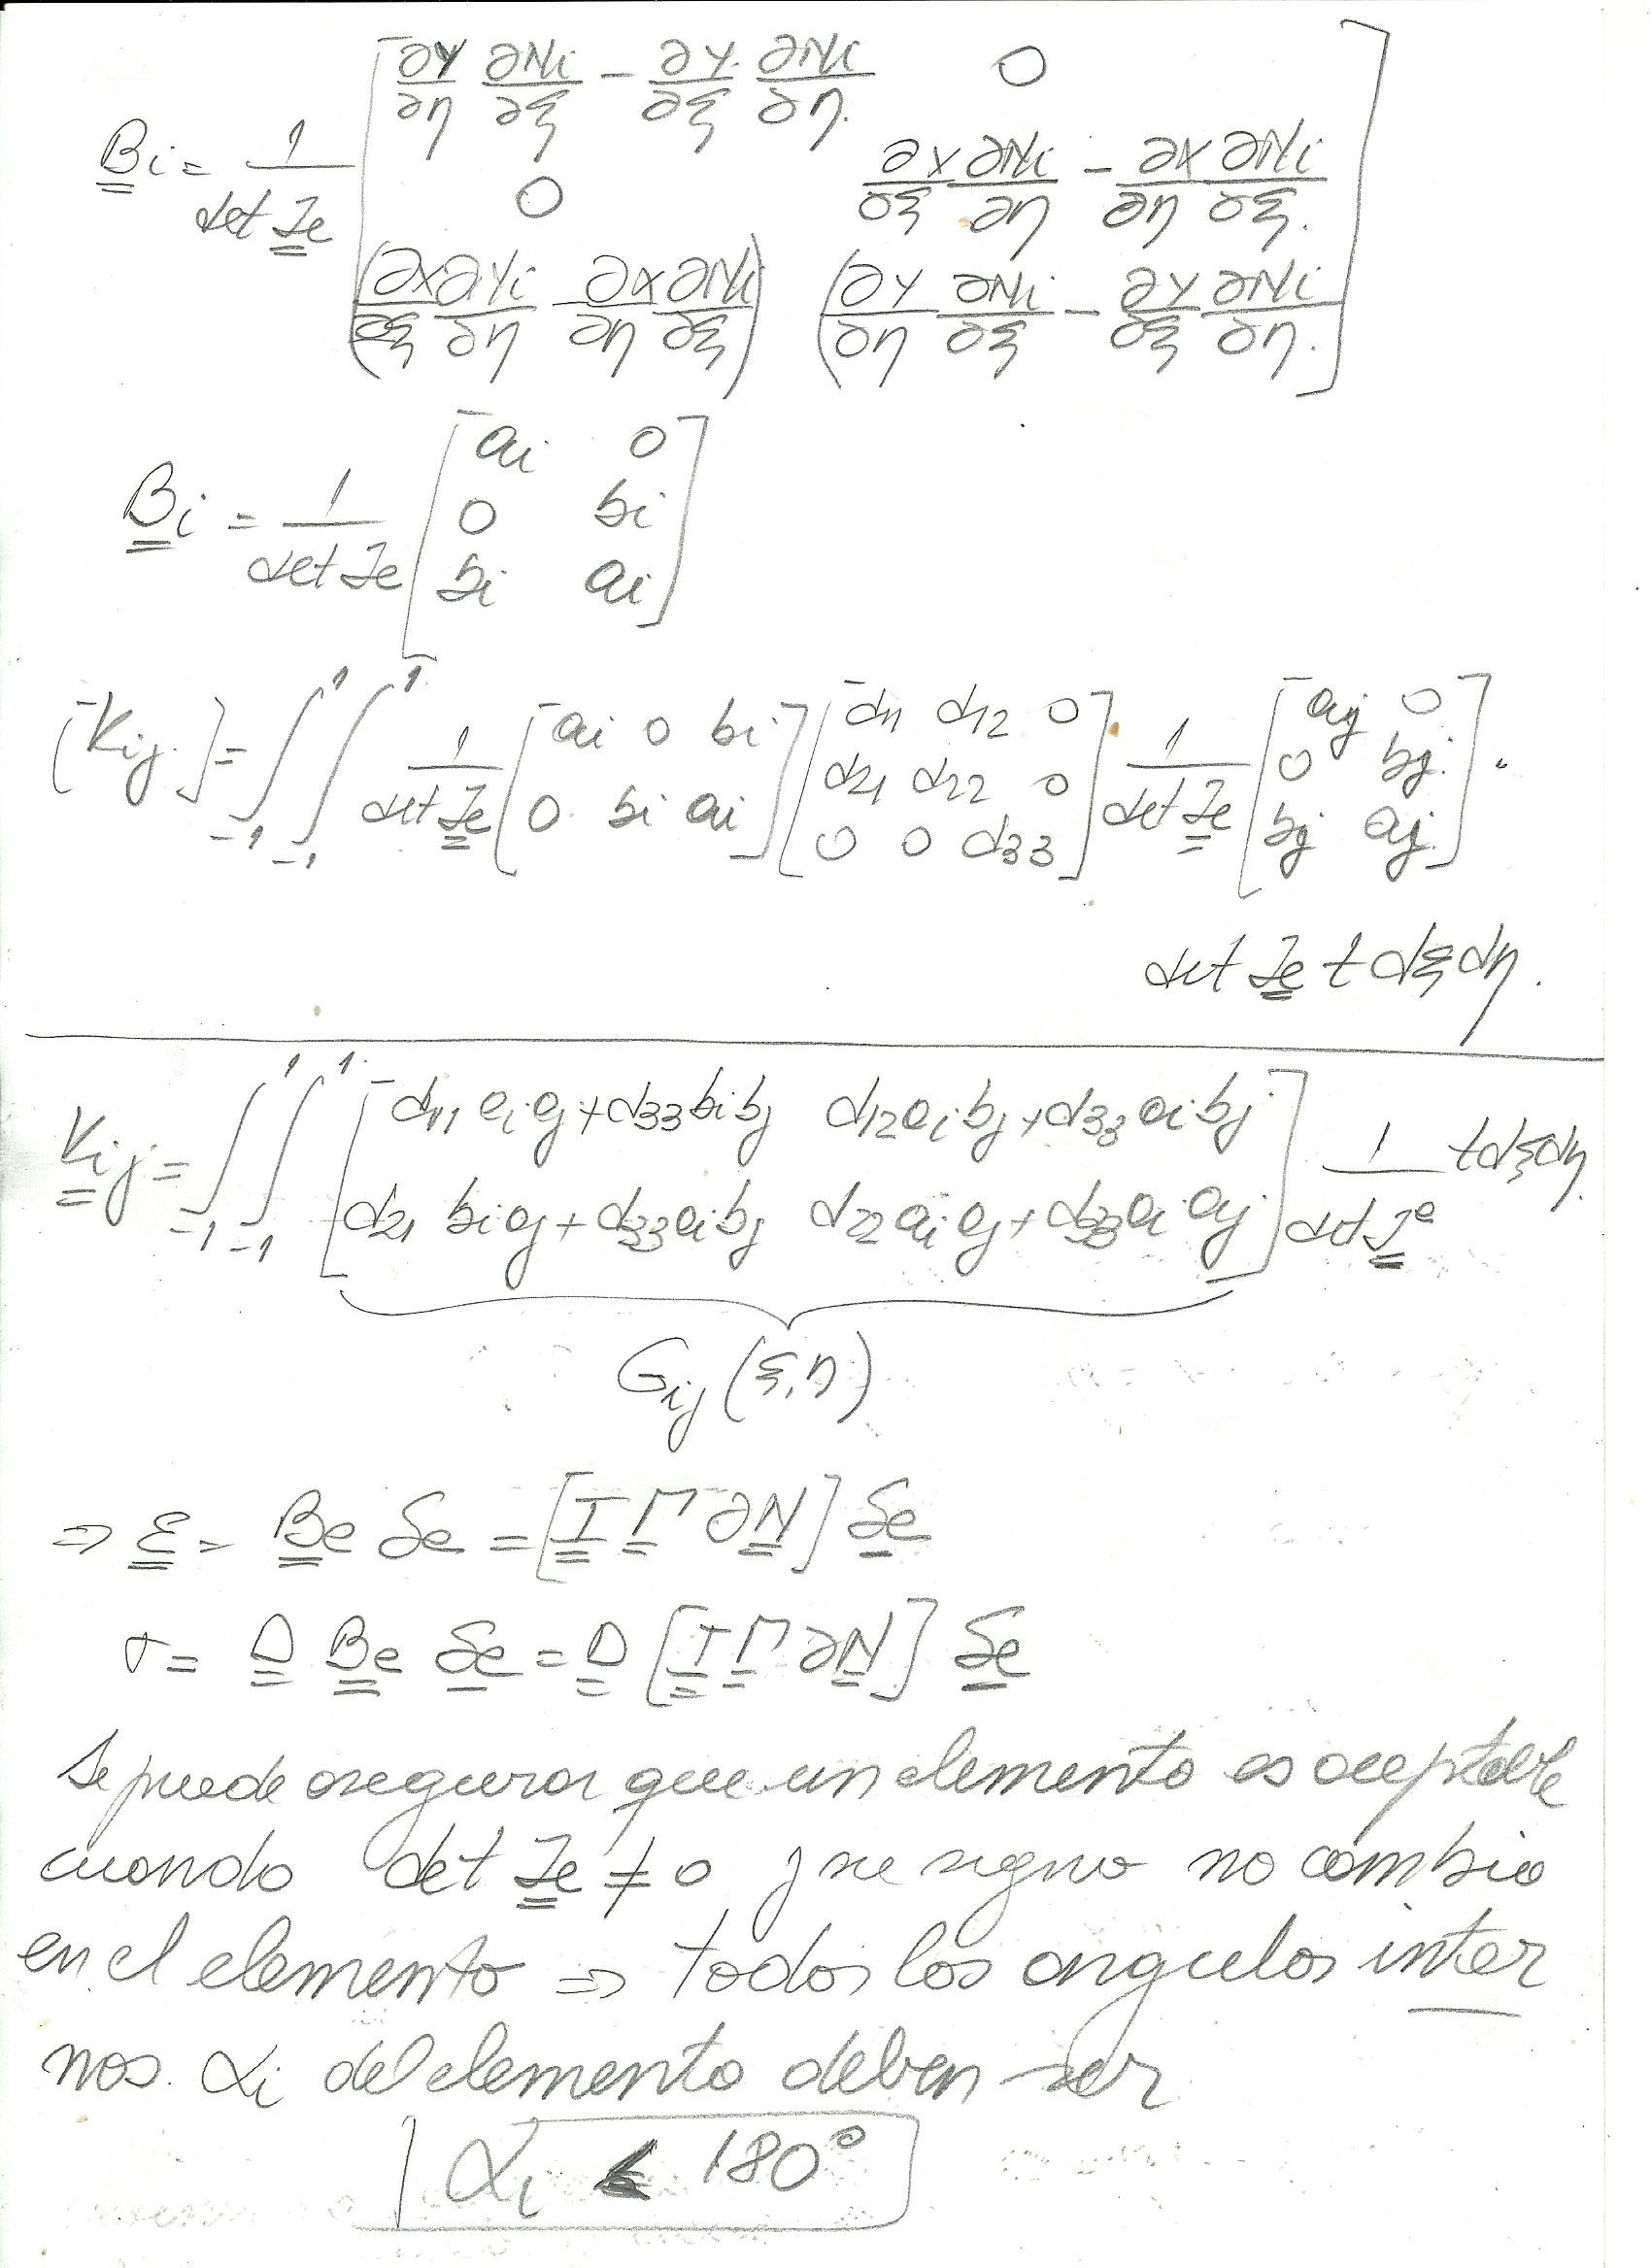 B̳i = 1/(det J̳e) [ ∂y/∂η ∂Ni/∂ξ − ∂y/∂ξ ∂Ni/∂η.   0
0   ∂x/∂ξ ∂Ni/∂η − ∂x/∂η ∂Ni/∂ξ.
(∂x/∂ξ ∂Yi/∂η − ∂x/∂η ∂Ni/∂ξ)   (∂y/∂η ∂Ni/∂ξ − ∂y/∂ξ ∂Ni/∂η.) ]
B̳i = 1/(det Je) [ ai   0
0   bi
bi   ai ]
[Kij] = ∫₋₁¹ ∫₋₁¹ 1/(det J̳e) [ ai 0 bi ; 0 bi ai ] [ d11 d12 0 ; d21 d22 0 ; 0 0 d33 ] 1/(det J̳e) [ aj 0 ; 0 bj ; bj aj ] ·
det J̳e t dξ dη.
K̳ij = ∫₋₁¹ ∫₋₁¹ [ d11 ai aj + d33 bi bj   d12 ai bj + d33 ai bj ; d21 bi aj + d33 ai bj   d22 ai aj + d33 ai aj ] 1/(det J̳ᵉ) t dξ dη.
Gij (ξ,η)
⇒ ε̳ = B̳e δe = [I̳ Γ̲ ∂N̳] δ̲e
σ = D̳ B̳e δ̲e = D̳ [I̳ Γ̲ ∂N̲] δ̲e
Se puede asegurar que un elemento es aceptable
cuando det J̳e ≠ 0 y se signo no cambie
en el elemento ⇒ todos los angulos inter
nos. αi del elemento deben ser
αi < 180°